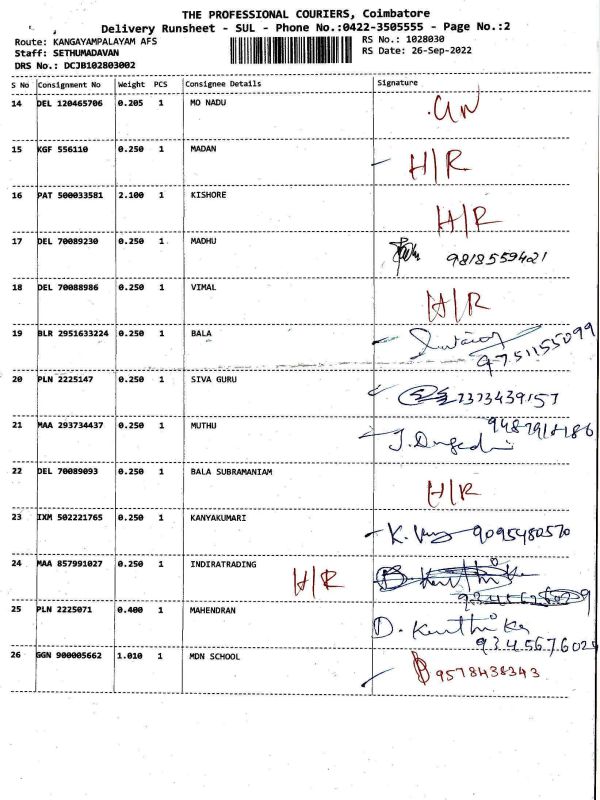 THE PROFESSIONAL COURIERS, Coimbatore
Delivery Runsheet - SUL - Phone No.:0422-3505555 - Page No.:2
Route: KANGAYAMPALAYAM AFS RS No.: 1028030
Staff: SETHUMADAVAN RS Date: 26-Sep-2022
DRS No.: DCJB102803002
S No Consignment No Weight PCS Consignee Details Signature
14 DEL 120465706 0.205 1 MO NADU
15 KGF 556110 0.250 1 MADAN H/R
16 PAT 500033581 2.100 1 KISHORE H/R
17 DEL 70089230 0.250 1 MADHU 9818559421
18 DEL 70088986 0.250 1 VIMAL H/R
19 BLR 2951633224 0.250 1 BALA 9751155099
20 PLN 2225147 0.250 1 SIVA GURU 7373439157
21 MAA 293734437 0.250 1 MUTHU
22 DEL 70089093 0.250 1 BALA SUBRAMANIAM H/R
23 IXM 502221765 0.250 1 KANYAKUMARI K. 9095480570
24 MAA 857991027 0.250 1 INDIRATRADING H/R
25 PLN 2225071 0.400 1 MAHENDRAN D. Keerthika
26 GGN 900005662 1.010 1 MDN SCHOOL 9578438343